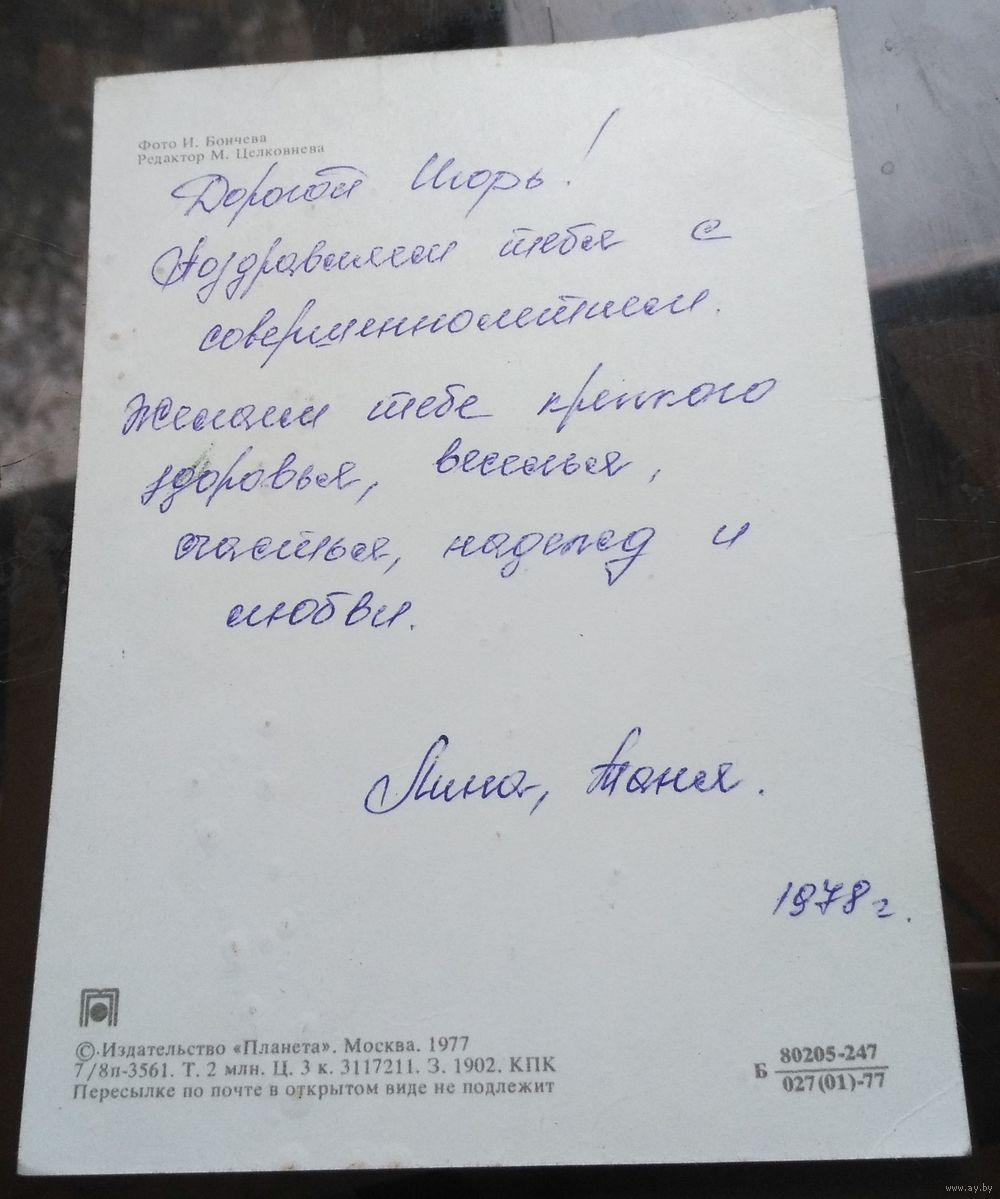 Фото И. Бончева
Редактор М. Целковнева
Дорогой Игорь!
Поздравляем тебя с
совершеннолетием.
Желаем тебе крепкого
здоровья, веселья,
счастья, надежд и
любви.
Лина, Таня.
1978 г.
© Издательство «Планета». Москва. 1977
7/8п-3561. Т. 2 млн. Ц. 3 к. 3117211. З. 1902. КПК
Пересылке по почте в открытом виде не подлежит
Б 80205-247
027(01)-77
www.ay.by